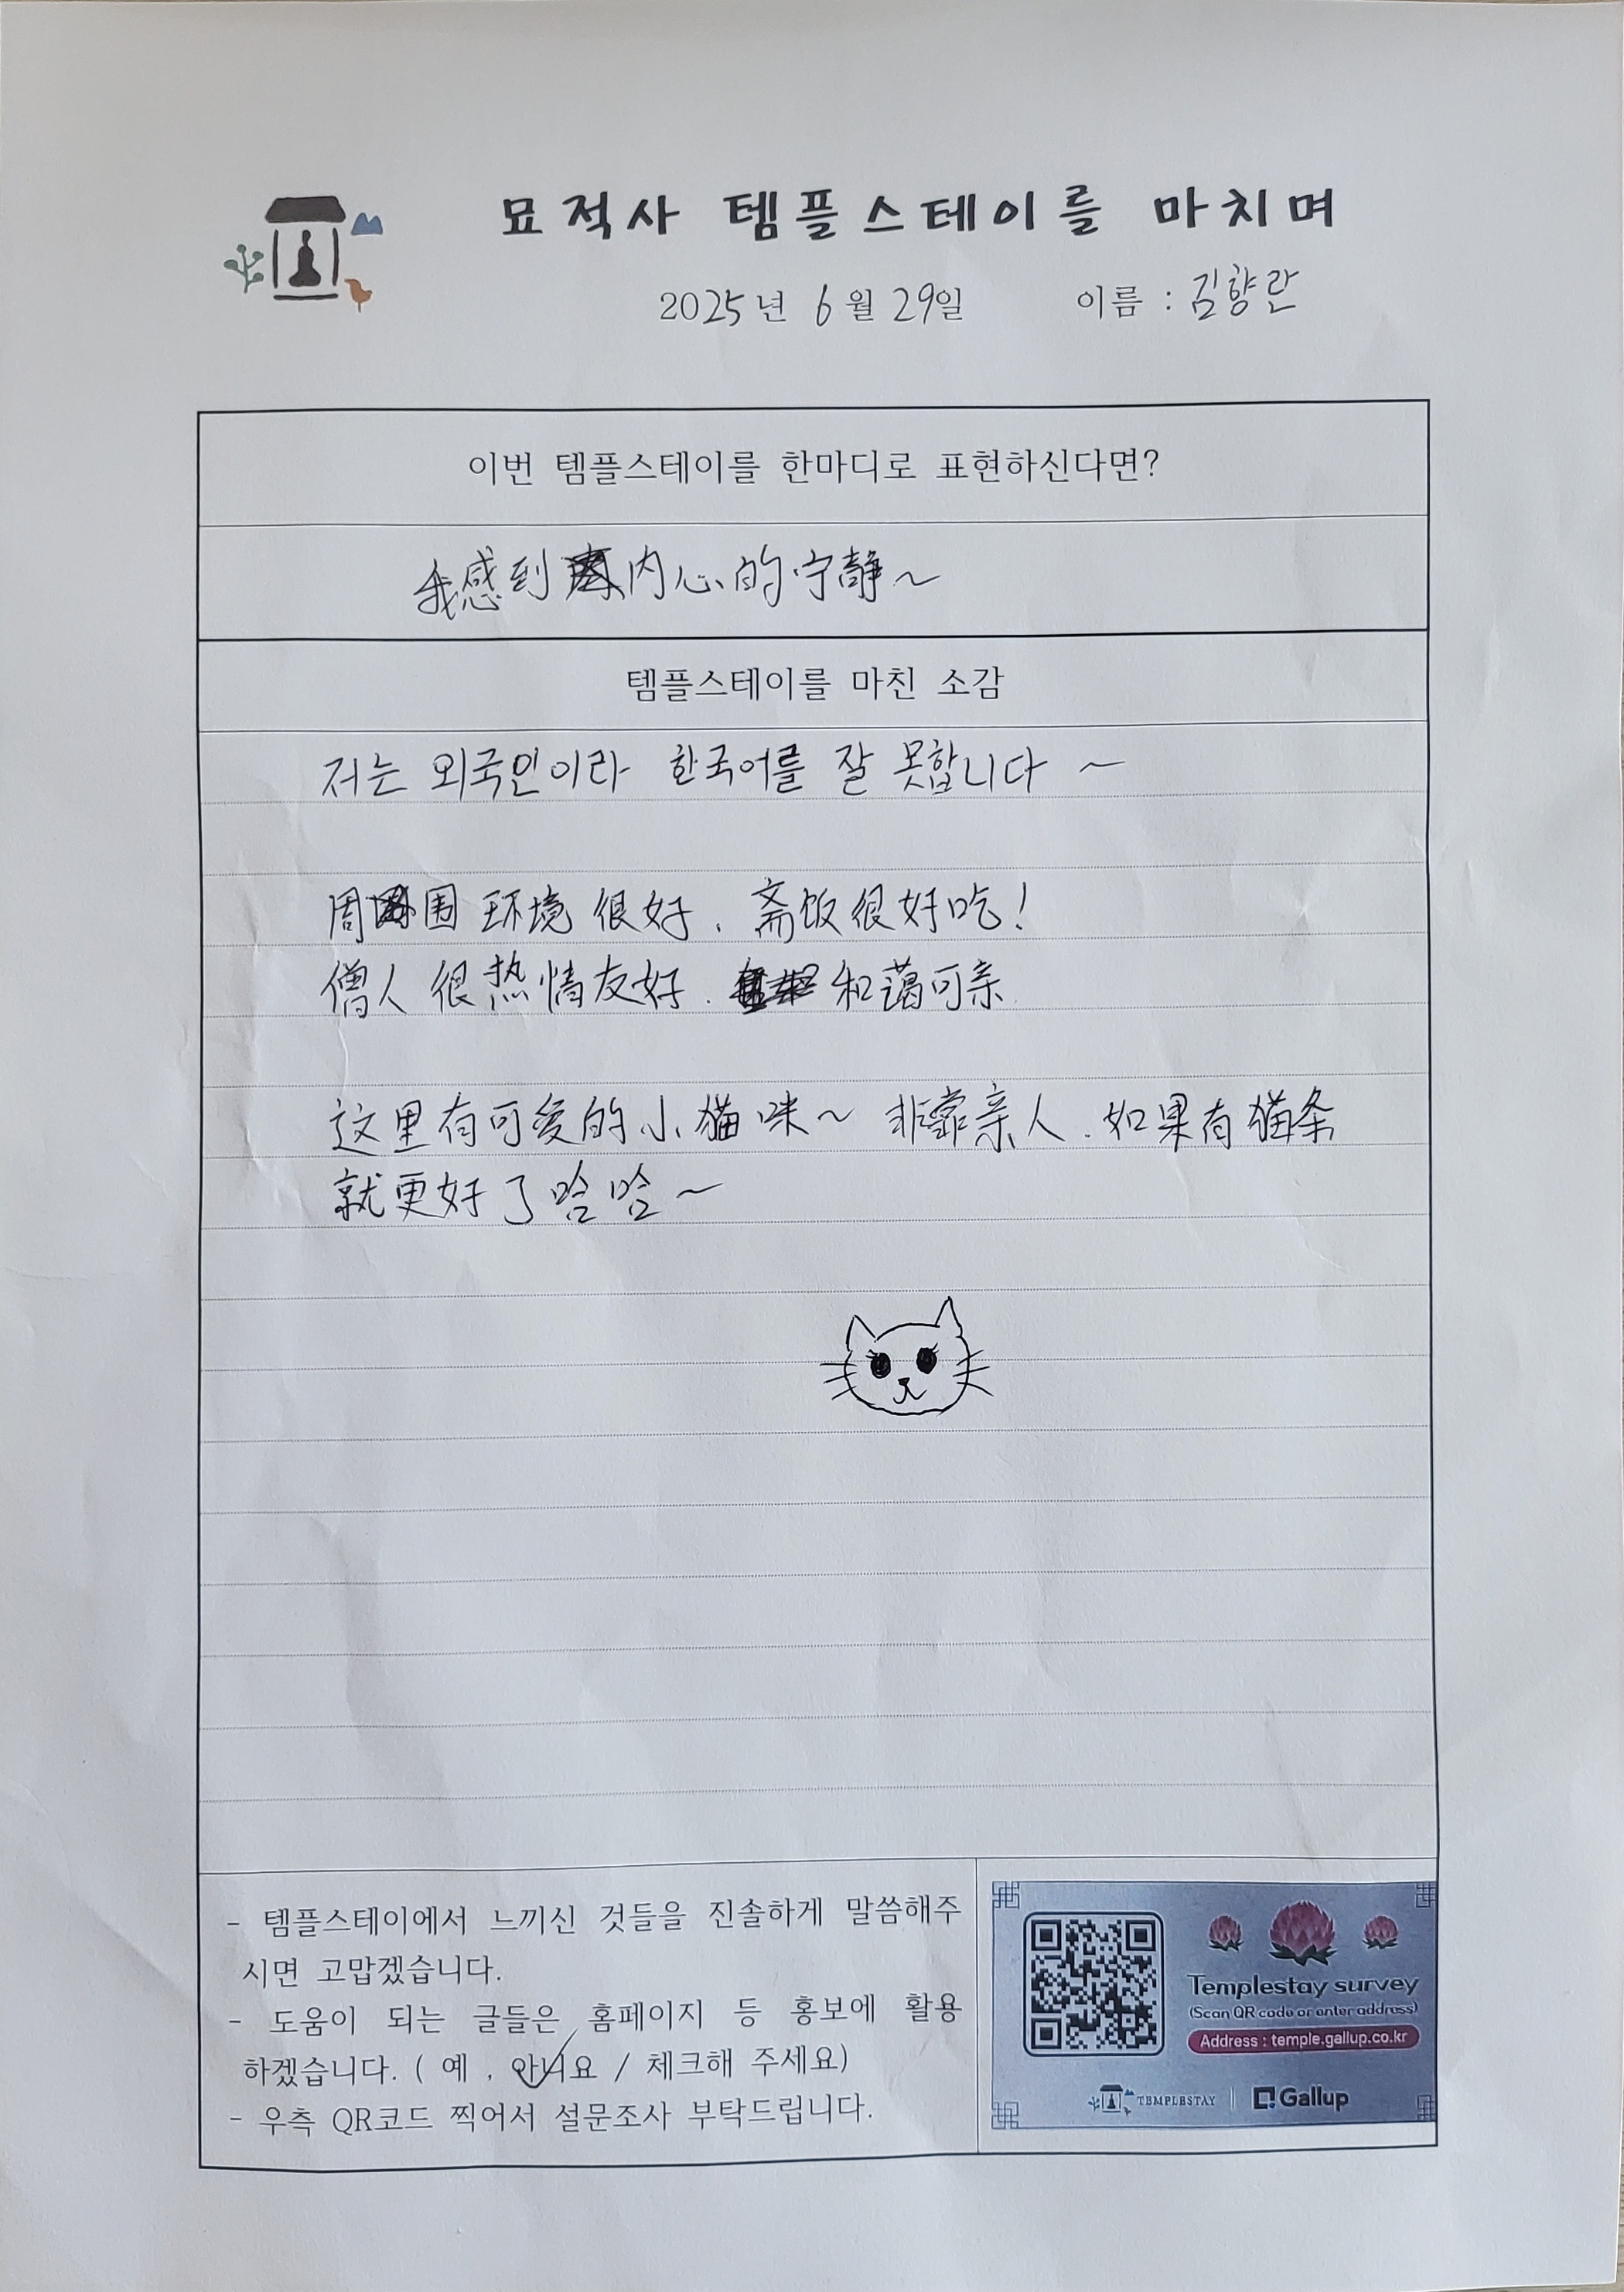 묘적사 템플스테이를 마치며
2025년 6월 29일 이름 : 김향란
이번 템플스테이를 한마디로 표현하신다면?
我感到内心的宁静~
템플스테이를 마친 소감
저는 외국인이라 한국어를 잘 못합니다 ~
周围环境很好. 斋饭很好吃!
僧人很热情友好. 和蔼可亲
这里有可爱的小猫咪~ 非常亲人. 如果有猫条
就更好了哈哈~
- 템플스테이에서 느끼신 것들을 진솔하게 말씀해주
시면 고맙겠습니다.
- 도움이 되는 글들은 홈페이지 등 홍보에 활용
하겠습니다. ( 예 , 아니요 / 체크해 주세요)
- 우측 QR코드 찍어서 설문조사 부탁드립니다.
Templestay survey
(Scan QR code or enter address)
Address : temple.gallup.co.kr
TEMPLESTAY Gallup